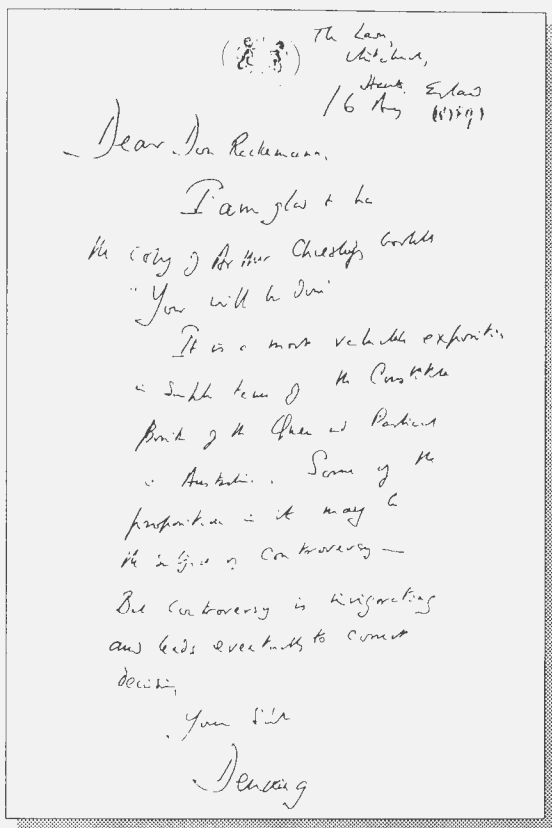 The Lawn,
Whitchurch,
Hants. England
16 Aug
Dear Don
I am glad to have
the copy of Arthur Chresby's booklet
"Your will be Done"
It is a most valuable exposition
in simple terms of the Constitutional
Position of the Queen and Parliament
in Australia. Some of the
propositions in it may be
the subject of controversy —
But controversy is invigorating
and leads eventually to correct
decisions
Yours Sincerely
Denning